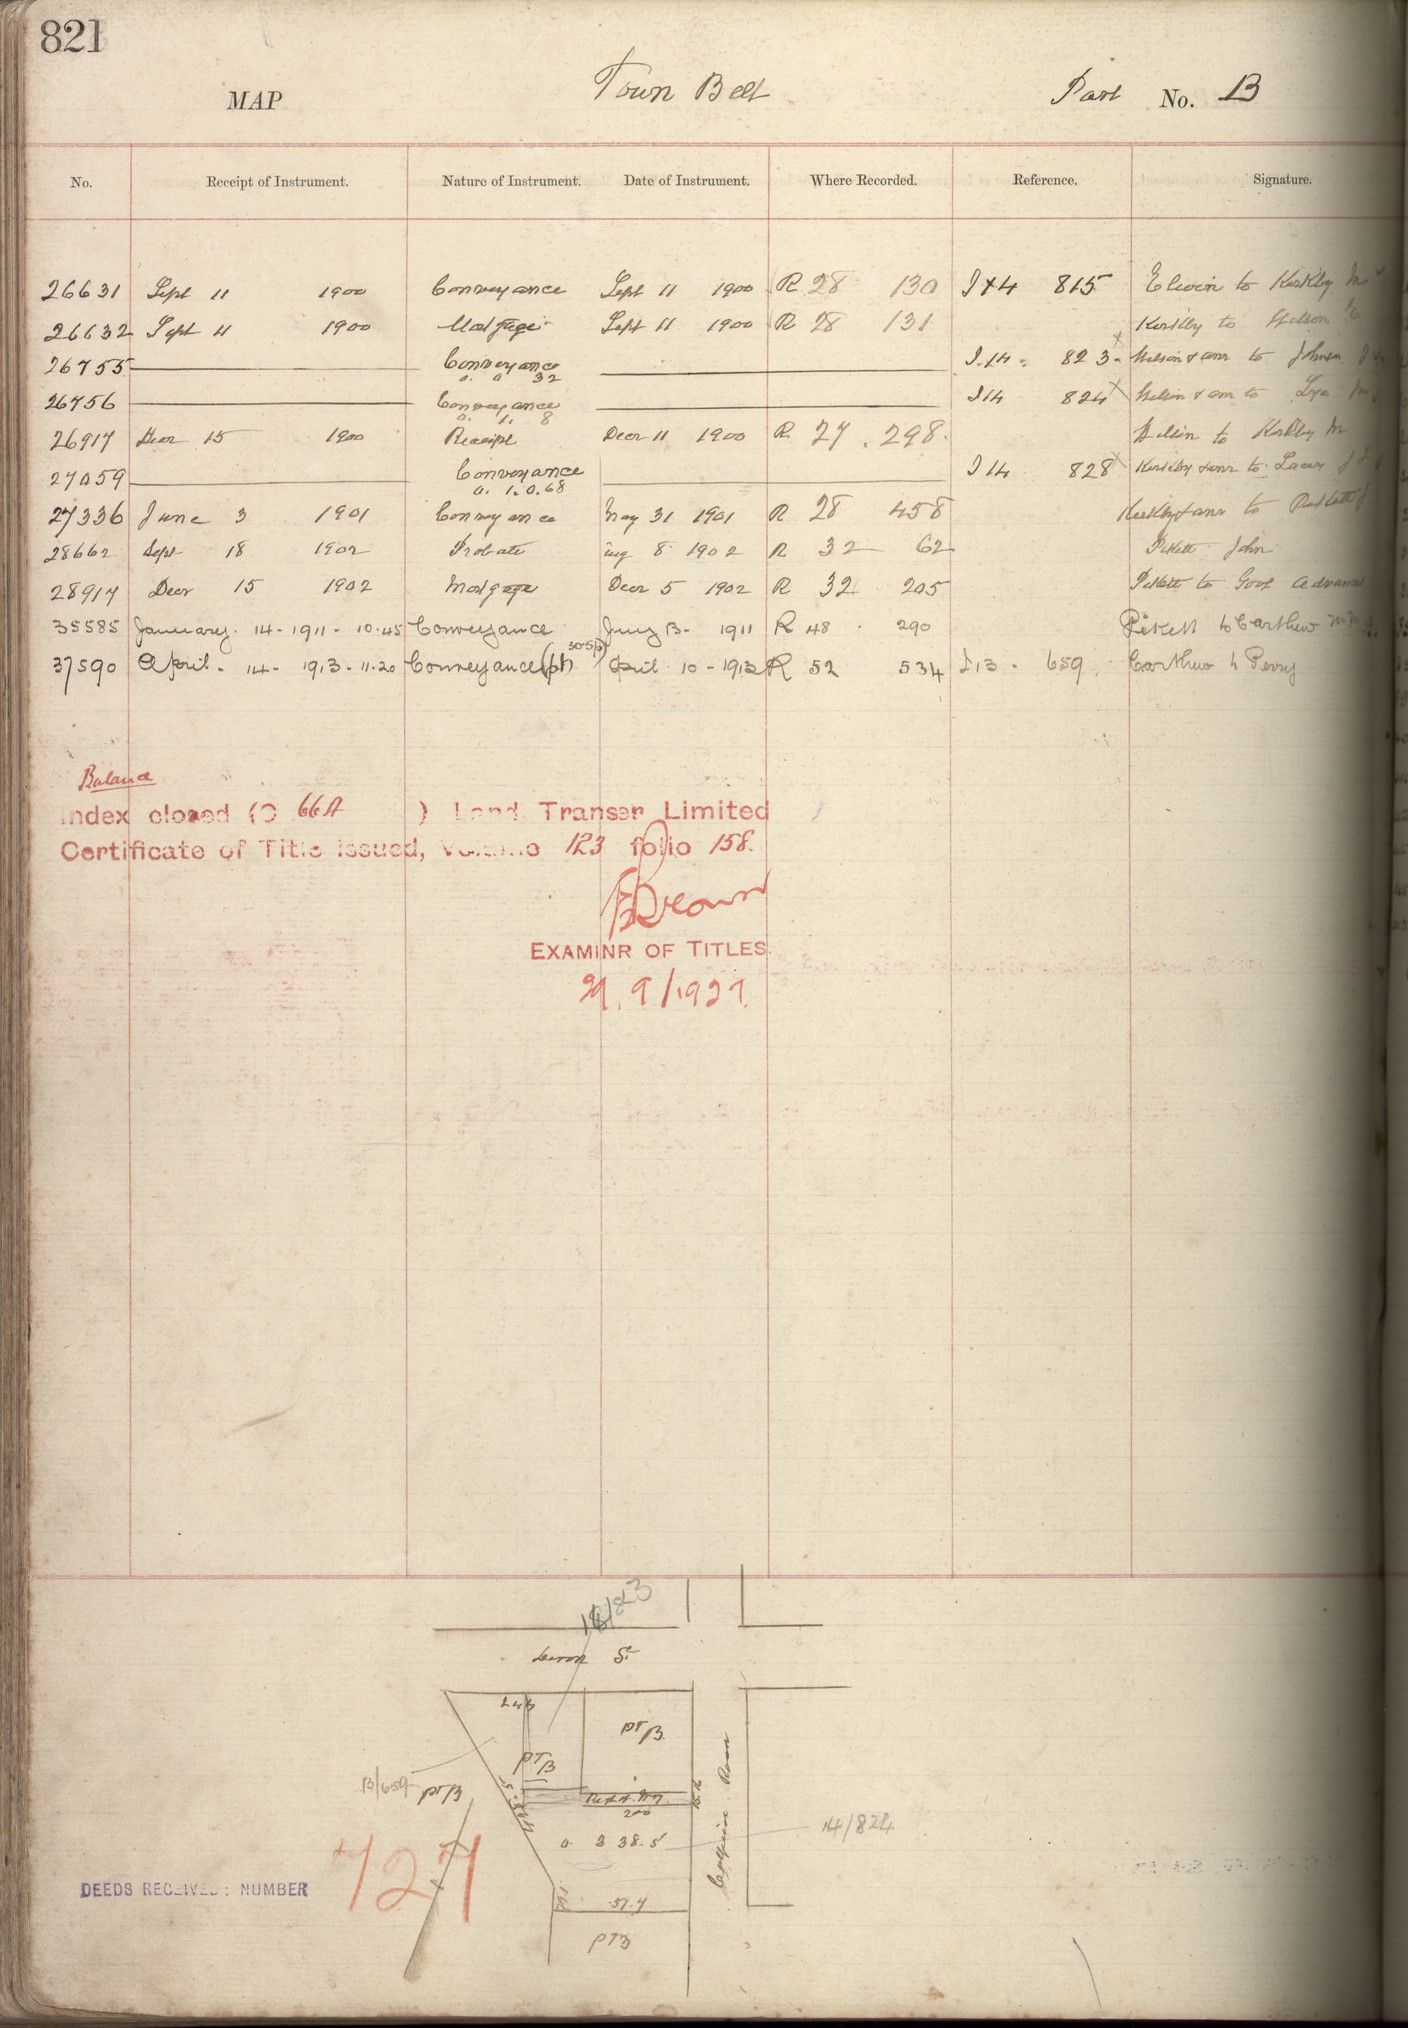 821
MAP Town Belt Part No. B
No. Receipt of Instrument. Nature of Instrument. Date of Instrument. Where Recorded. Reference. Signature.
26631 Sept 11 1900 Conveyance Sept 11 1900 R 28 130 I 14 815 Elwin to Kirkby M
26632 Sept 11 1900 Mortgage Sept 11 1900 R 28 131 Kirkby to Wilson
26755 Conveyance I.14 823 Wilson & anr to Johnson
0. 0 32
26756 Conveyance I 14 824 Wilson & anr to Lye
0. 1. 8
26917 Decr 15 1900 Receipt Decr 11 1900 R 27. 298. Wilson to Kirkby M
27059 Conveyance I 14 828 Kirkby & anr to Lacey J
0. 1. 0.68
27336 June 3 1901 Conveyance May 31 1901 R 28 458 Kirkby & anr to Pickett J
28662 Sept 18 1902 Probate Aug 8 1902 R 32 62 Pikett John
28917 Decr 15 1902 Mortgage Decr 5 1902 R 32 205 Pikett to Govt Advances
35585 January. 14-1911-10.45 Conveyance Jany 13- 1911 R 48 290 Pikett to Carthew
37590 April. 14- 1913-11.20 Conveyance (pt) April 10-1913 R 52 534 I.13. 659. Carthew to Perry
Balance
Index closed (C 66A ) Land Transer Limited
Certificate of Title issued, Volume 123 folio 158.
Brown
EXAMINR OF TITLES.
29.9/1927.
14/823
St
pt B
pt B
13/659 pt B
Right of Way
200
0. 3 38.5
14/824
Road
727
DEEDS RECEIVED: NUMBER
51.7
pt B